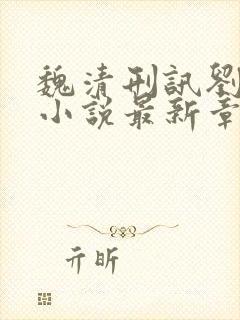 魏清刑訊劉
小說最新章
亓昕